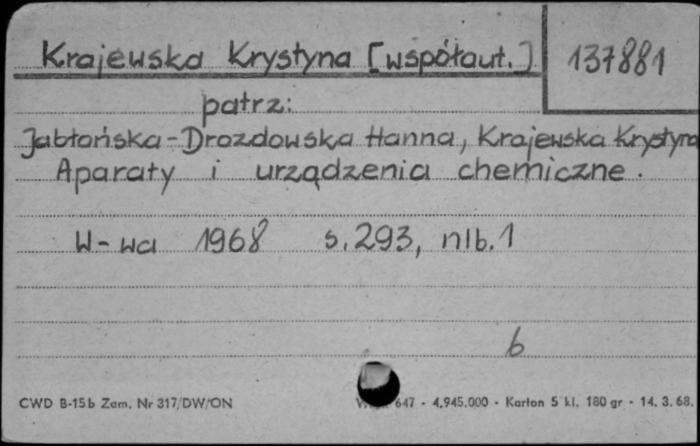 Krajewska Krystyna [współaut.] 137881
patrz:
Jabłońska-Drozdowska Hanna, Krajewska Krystyna
Aparaty i urządzenia chemiczne.
W-wa 1968 s. 293, nlb. 1
b
CWD B-15b Zam. Nr 317/DW/ON 647 - 4.945.000 - Karton 5 kl. 180 gr - 14. 3. 68.